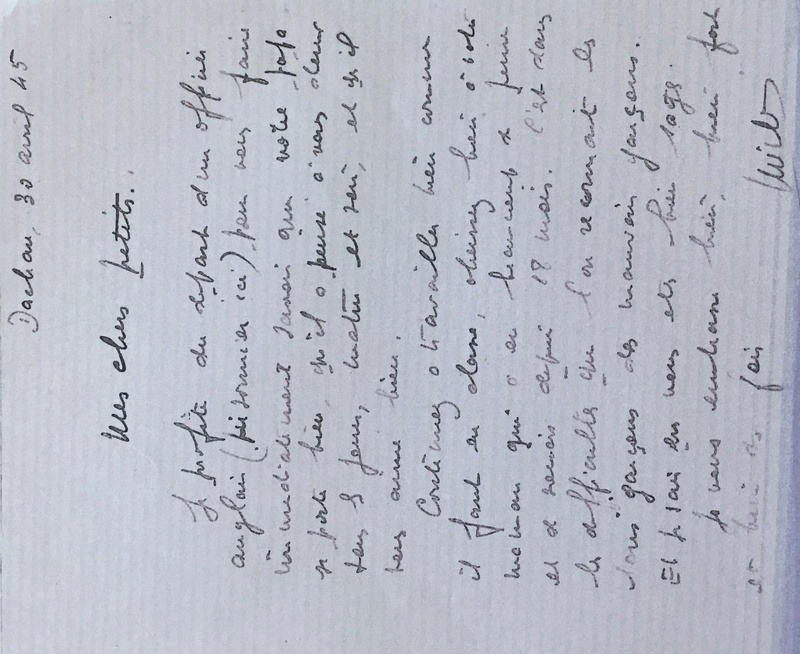 Dachau, 30 avril 45
Mes chers petits..
Je profite du départ d'un officier
anglais (prisonnier ici) pour vous faire
immédiatement savoir que votre papa
se porte bien, qu'il a pensé à vous deux
tous les jours, matin et soir, et qu'il
vous aime bien.
Continuez à travailler bien comme
il faut en classe, obéissez bien à votre
maman qui a eu beaucoup de peine
et de soucis depuis 18 mois. C'est dans
les difficultés que l'on reconnait les
bons garçons des mauvais garçons.
Et je sais que vous êtes bien sages.
Je vous embrasse bien, bien fort
et bien des fois